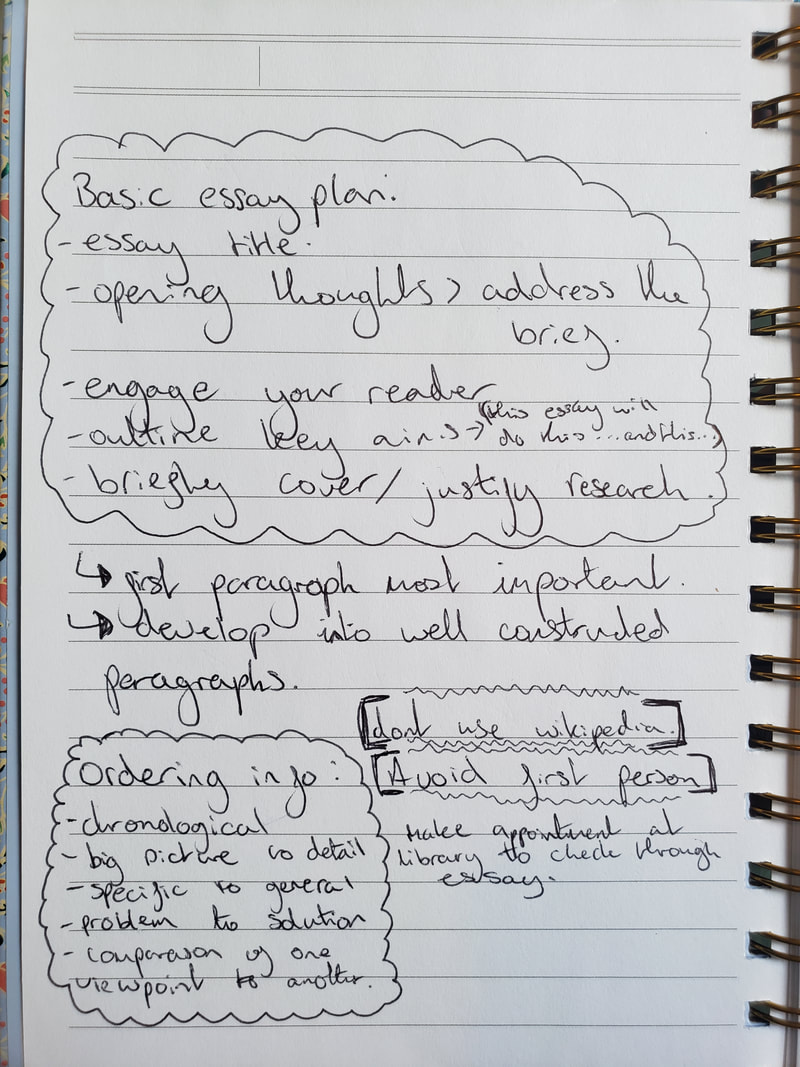 Basic essay plan.
- essay title.
- opening thoughts > address the
brief.
- engage your reader
(this essay will
- outline key aims → do this ... and this...)
- briefly cover / justify research.
↳ first paragraph most important.
↳ develop into well constructed
paragraphs.
[dont use wikipedia.]
[Avoid first person]
Make appointment at
library to check through
essay.
Ordering info:
- chronological
- big picture to detail
- specific to general
- problem to solution
- comparison of one
viewpoint to another.